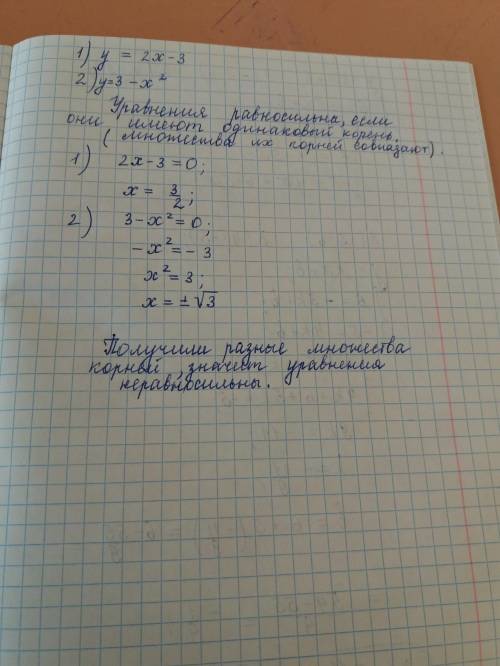 1) y = 2x-3
2) y=3-x²
Уравнения равносильна, если
они имеют одинаковый корень.
(множества их корней совпадают).
1) 2x-3=0;
x = 3/2;
2) 3-x²=0;
-x²=-3
x²=3;
x=±√3
Получили разные множества
корный, значит уравнения
неравносильны.